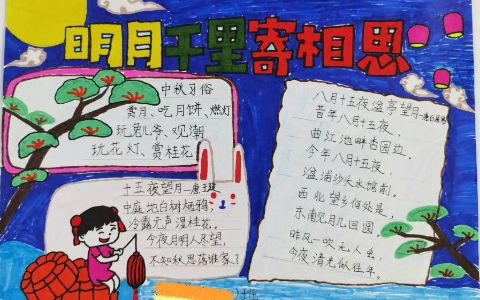 明月千里寄相思
中秋习俗
赏月、吃月饼、燃灯
玩兔儿爷、观潮
玩花灯、赏桂花
十五夜望月—唐王建
中庭地白树栖鸦，
冷露无声湿桂花。
今夜月明人尽望，
不知秋思落谁家？
八月十五夜湓亭望月
昔年八月十五夜，
曲江池畔杏园边，
今年八月十五夜，
湓浦沙头水馆前。
西北望乡何处是，
东南见月几回圆
昨风一吹无人会，
今夜清光似往年。